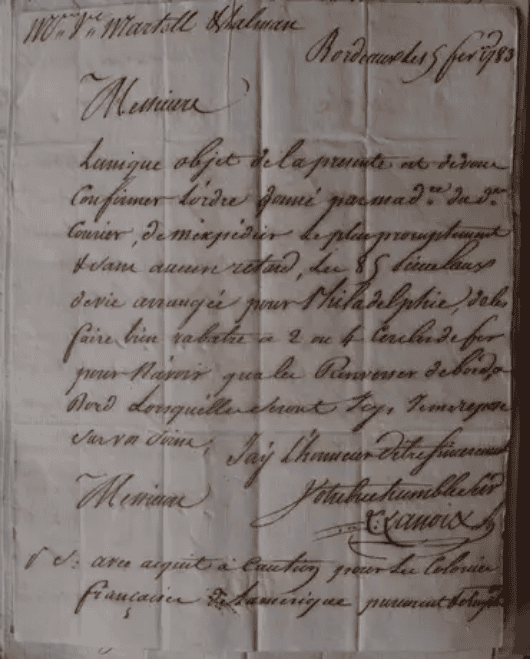 Mrs Vve Martell & Lalman
Bordeaux le 5 fevr 1783
Messieurs
L'unique objet de la presente est de vous
Confirmer L'órdre donné par mad. du d.
Courier, de m'expédier Le plus promptement
& sans aucun retard, Les 85 eaux
devie arrangées pour Philadelphie, de les
faire bien rabatre a 2 ou 4 Cercles de fer
pour N'avoir qua les Renverser de bord a
Bord Lorsquélles seront Icy, Je me repose
sur vos soins, J'ay L'honneur d'être
Messieurs Votre tres humble
Lanoix
P S: avec acquit à Caution pour Les Colonies
françaises de Lamerique purement &